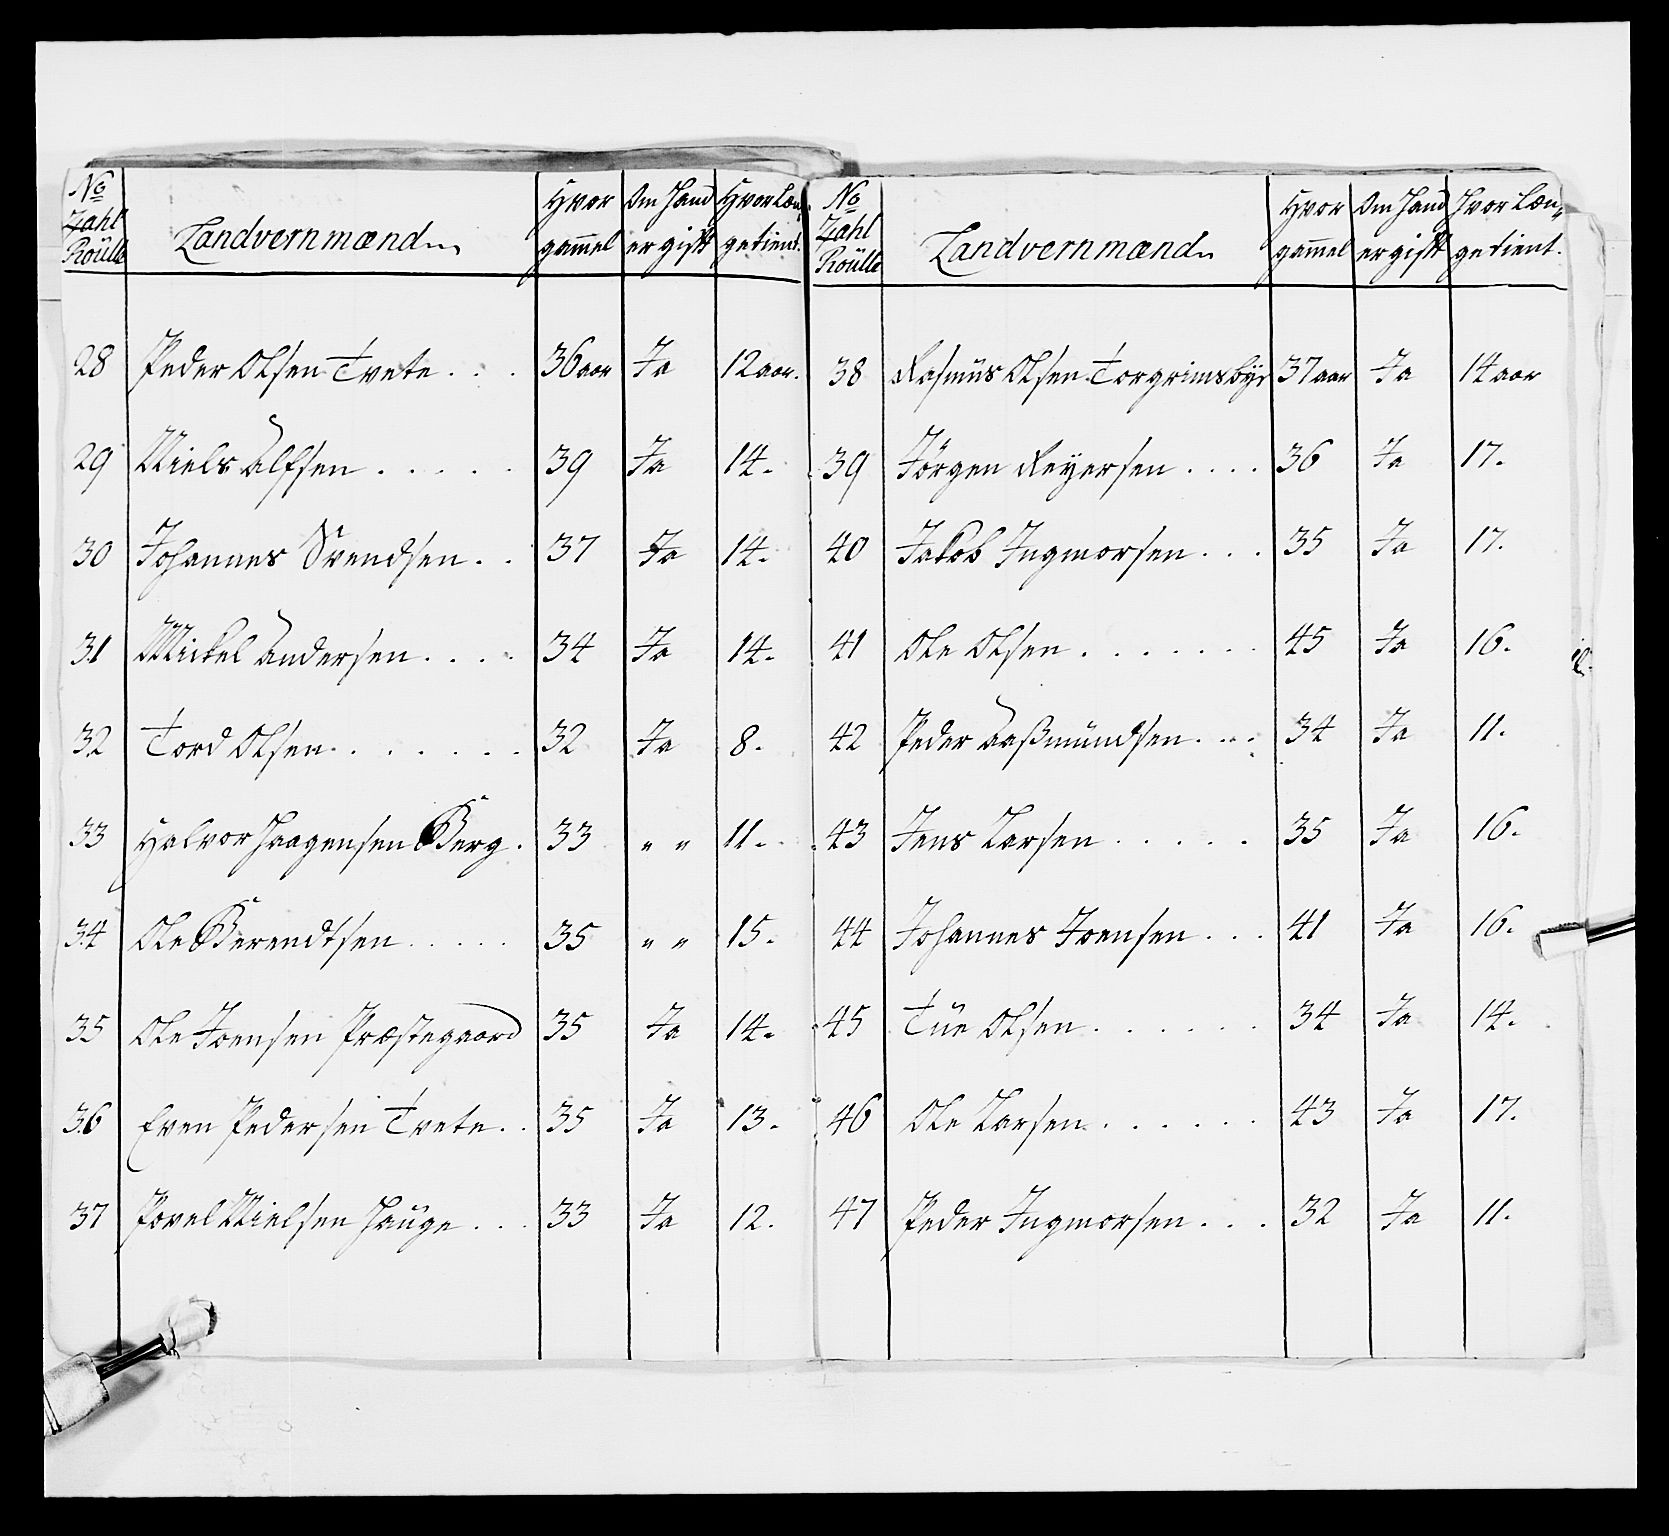 No
Zahl
Roülle
Landvernmænd
Hvor
gammel
Om Hand
er gift
Hvor Læn,,
getient.
28 Peder Olsen Tvete . . . 36 aar Ja 12 aar.
29 Niels Alfsen . . . . . 39 Ja 14.
30 Johannes Svendsen . . 37 Ja 14.
31 Mickel Andersen . . . . 34 Ja 14.
32 Tord Olsen . . . . . . . 32 Ja 8.
33 Halvor Haagensen Berg . 33 " " 11.
34 Ole Berendtsen . . . . . 35 " " 15.
35 Ole Joensen Præstegaard 35 Ja 14.
36 Even Pedersen Tvete . . 35 Ja 13.
37 Povel Nielsen Hauge . . . 33 Ja 12.
No
Zahl
Roülle
Landvernmænd
Hvor
gammel
Om Hand
er gift
Hvor Læn,,
getient.
38 Rasmüs Olsen Torgrimsbye 37 aar Ja 14 aar
39 Jörgen Reyersen . . . . 36 Ja 17.
40 Jakob Ingmorsen . . . 35 Ja 17.
41 Ole Olsen . . . . . . . 45 Ja 16.
42 Peder Aaßmündsen . . . . 34 Ja 11.
43 Jens Larsen . . . . . 35 Ja 16.
44 Johannes Joensen . . . 41 Ja 16.
45 Tüe Olsen . . . . . . 34 Ja 14.
46 Ole Larsen . . . . . . 43 Ja 17.
47 Peder Ingmorsen . . . 32 Ja 11.